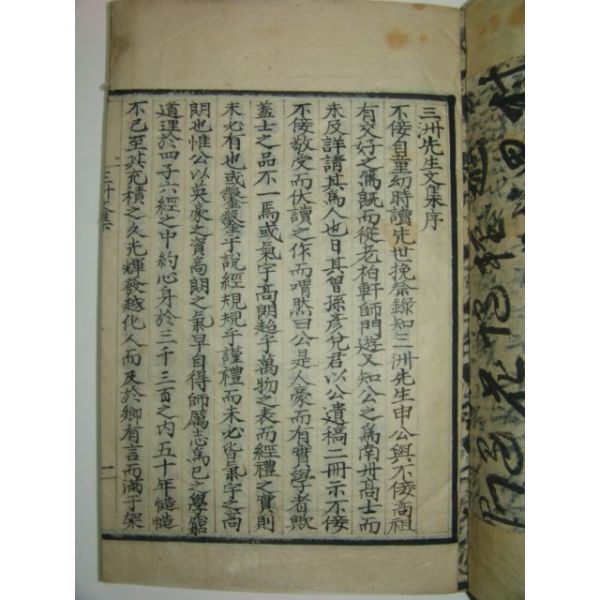 三洲先生文集序
不佞自童幼時讀先世挽祭錄知三洲先生申公與不佞高祖
有交好之篤旣而從老柏軒師門遊又知公之爲南州高士而
未及詳請其爲人也日其曾孫彦兌君以公遺稿二冊示不佞
不佞敬受而伏讀之作而喟然曰公是人豪而有實學者歟
盖士之品不一焉或氣宇高朗超乎萬物之表而經禮之實則
未必有也或鑿鑿乎說經規規乎謹禮而未必皆氣宇之高
朗也惟公以英豪之資高朗之氣早自得師厲志爲己之學窮
道理於四子六經之中約心身於三千三百之內五十年慥慥
不已至其充積之久光輝發越化人而及於鄕有言而滿于架
三洲文集
一